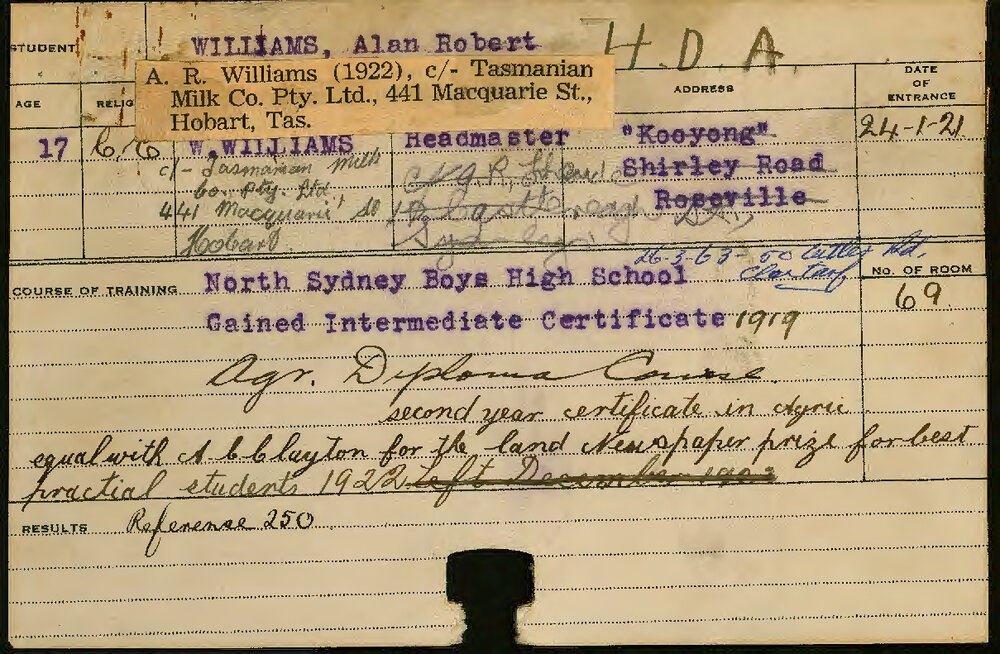 STUDENT WILLIAMS, Alan Robert H.D.A.
A. R. Williams (1922), c/- Tasmanian
Milk Co. Pty. Ltd., 441 Macquarie St.,
Hobart, Tas.
AGE RELIG ADDRESS DATE OF ENTRANCE
17 C/E W.WILLIAMS Headmaster "Kooyong" 24-1-21
Shirley Road
Roseville
c/- Tasmanian Milk
Co. Pty. Ltd
441 Macquarie St
Hobart
26-3-63 - 50 Cutler Rd.
Clontarf
No. OF ROOM
69
COURSE OF TRAINING North Sydney Boys High School
Gained Intermediate Certificate 1919
Agr. Diploma Course.
second year certificate in Agric
equal with A C Clayton for the land Newspaper prize for best
practial students 1922 left December 1922
RESULTS Reference 250